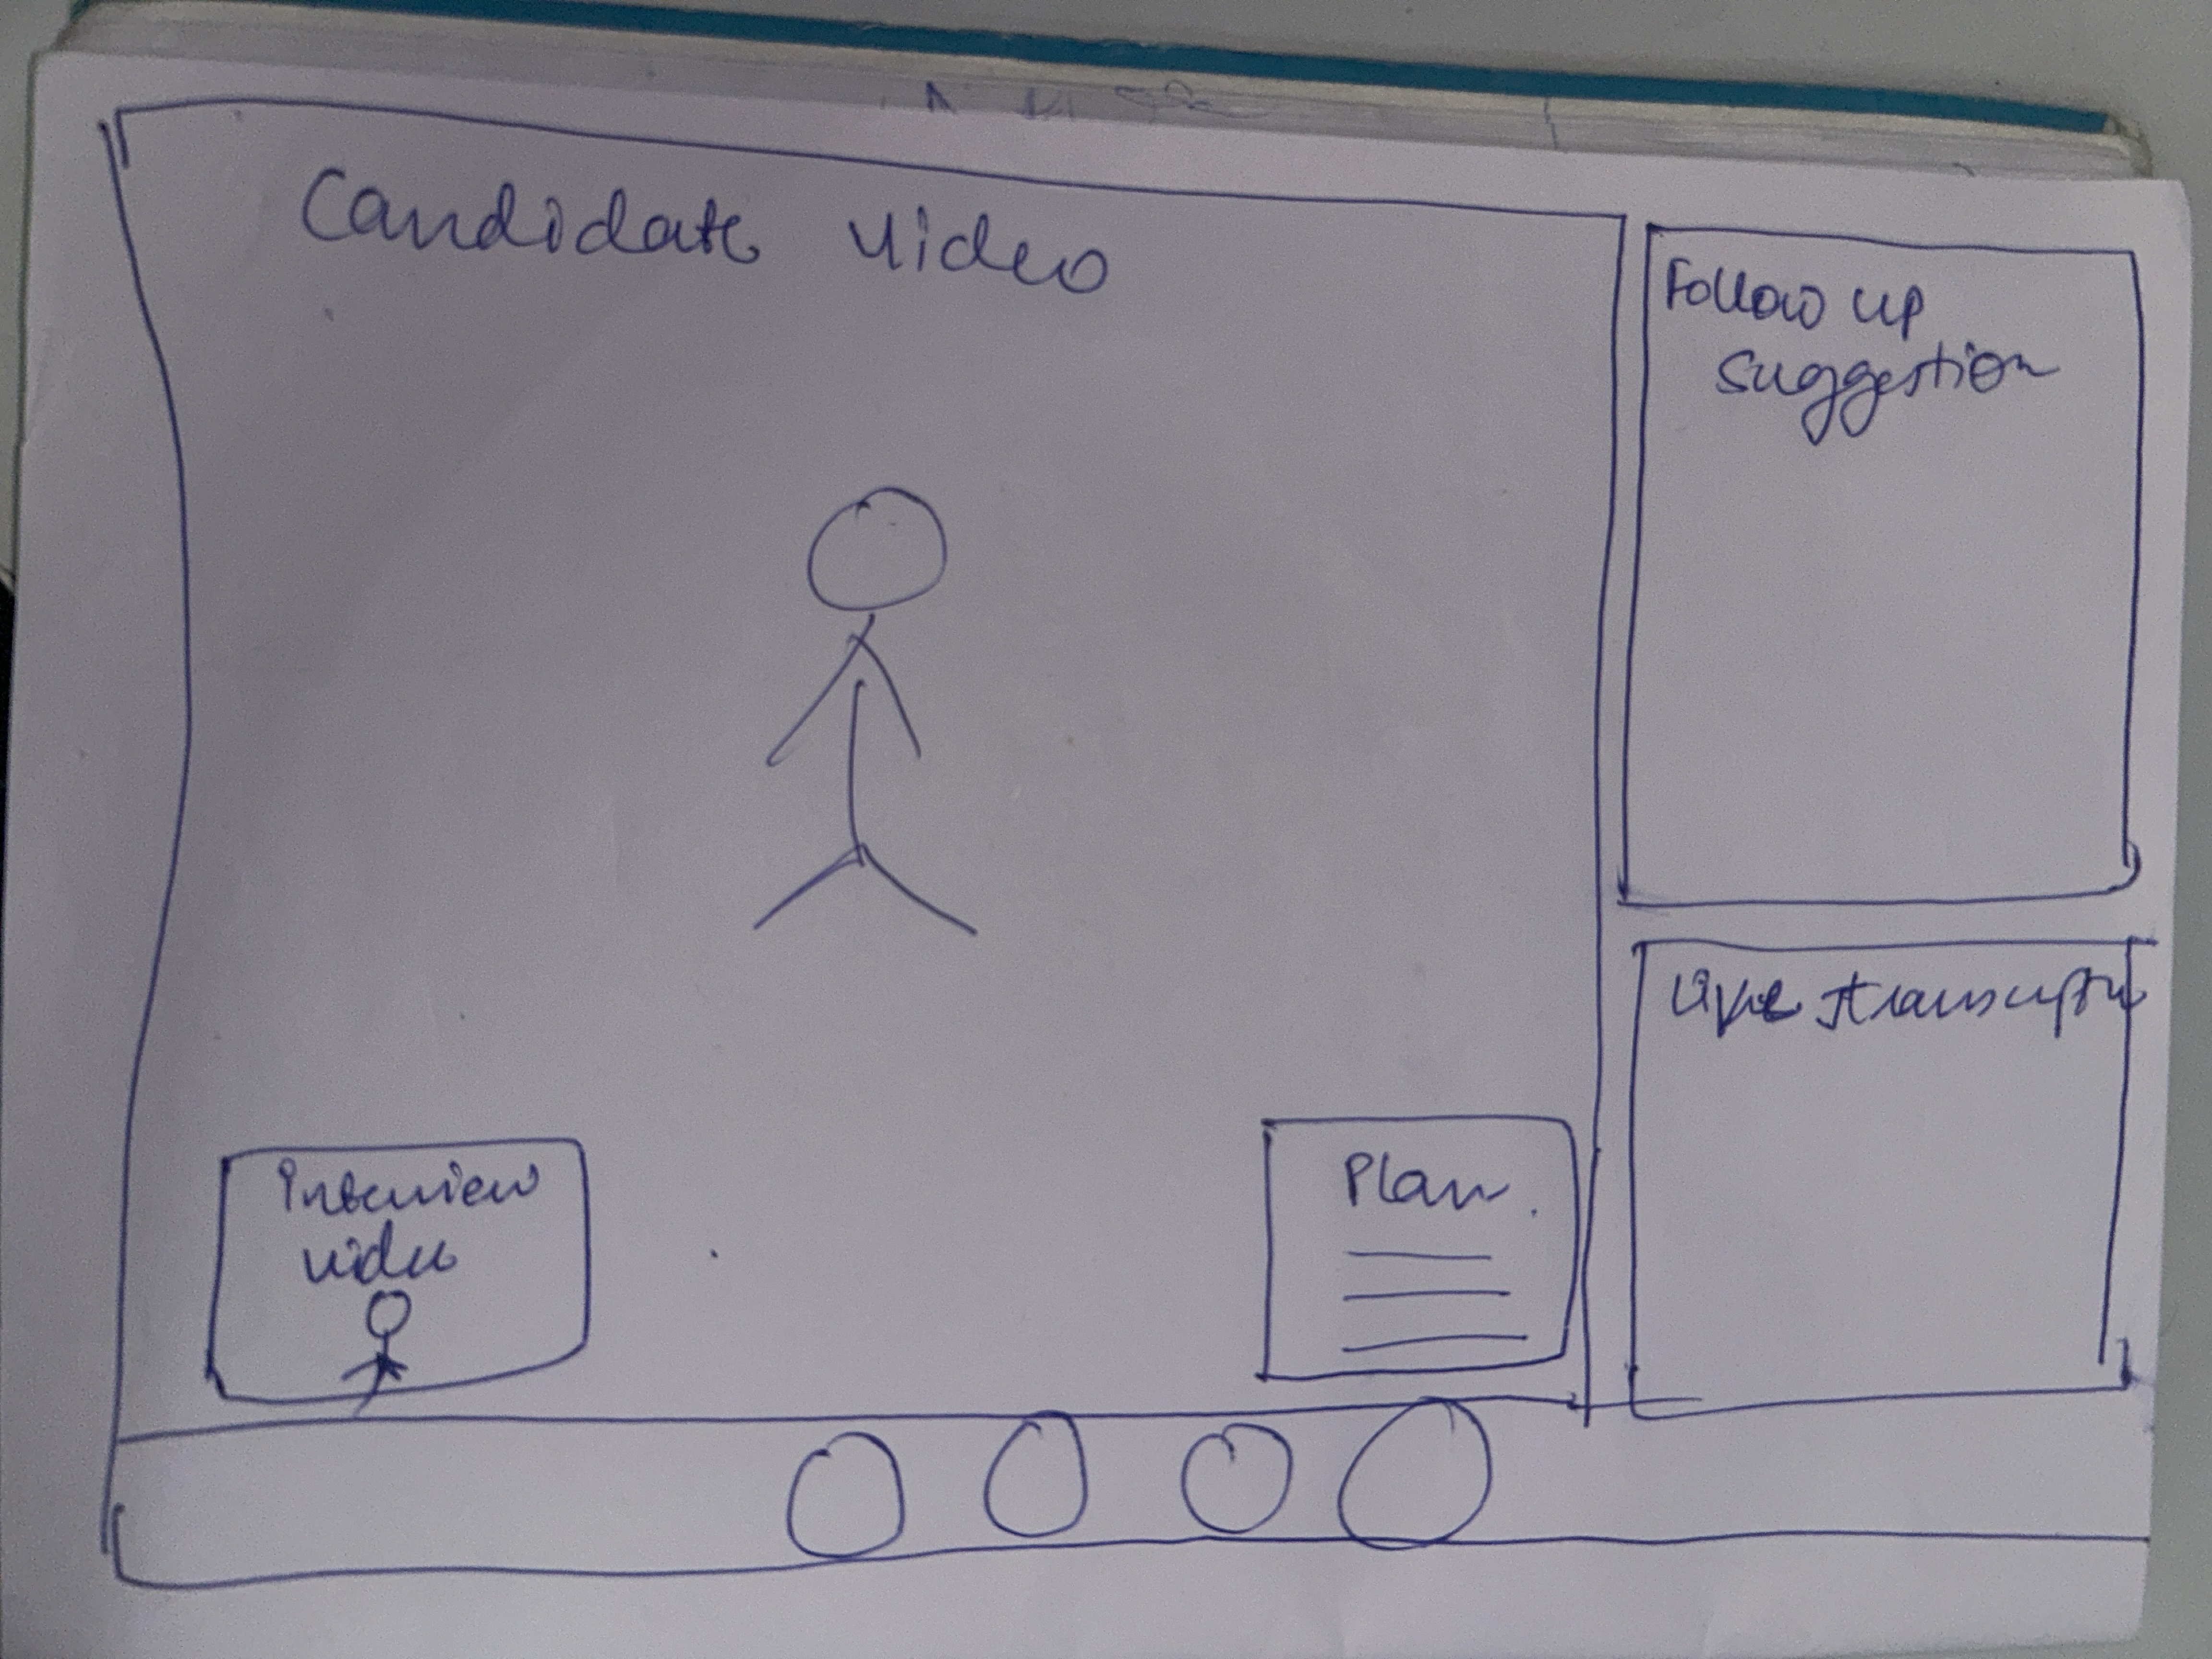 Candidate video
Follow up
suggestion
Live transcript
Interview
video
Plan.